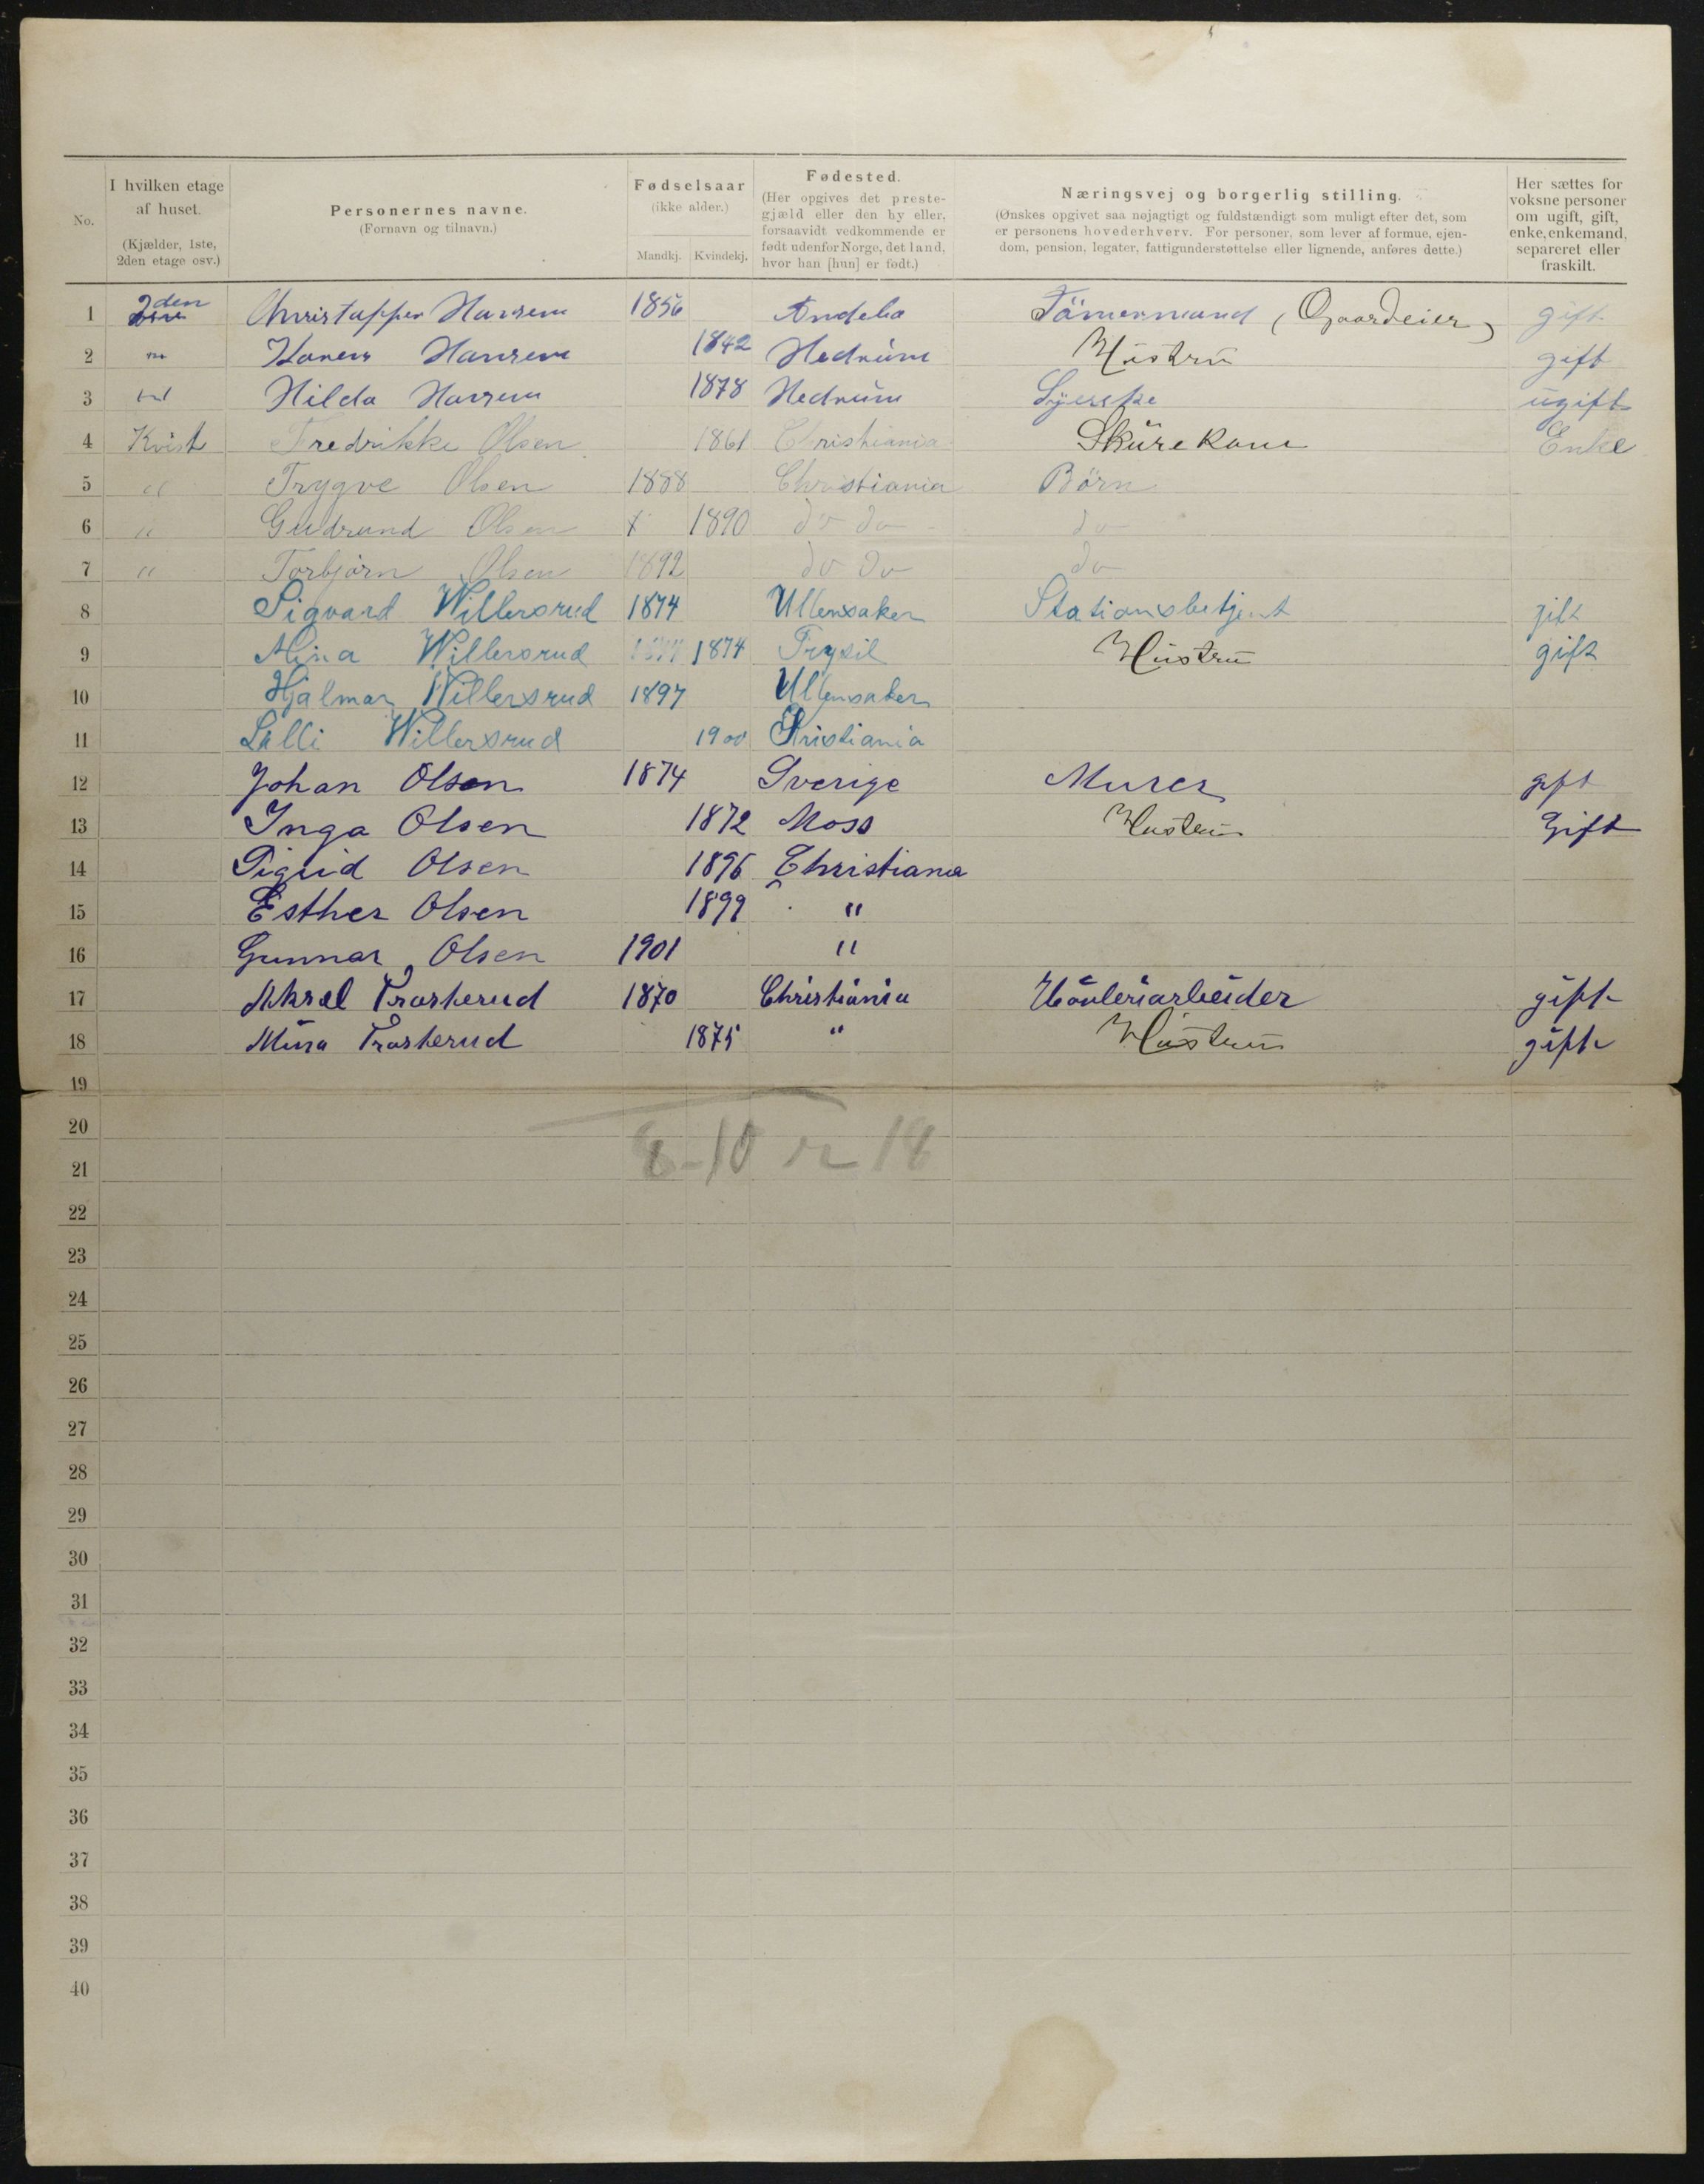 No.
I hvilken etage af huset.
(Kjælder, 1ste, 2den etage osv.)
Personernes navne.
(Fornavn og tilnavn.)
Fødselsaar
(ikke alder.)
Mandkj. Kvindekj.
Fødested.
(Her opgives det preste-
gjæld eller den by eller,
forsaavidt vedkommende er
født udenfor Norge, det land,
hvor han [hun] er født.)
Næringsvej og borgerlig stilling.
(Ønskes opgivet saa nøjagtigt og fuldstændigt som muligt efter det, som
er personens hovederhverv. For personer, som lever af formue, ejen-
dom, pension, legater, fattigunderstøttelse eller lignende, anføres dette.)
Her sættes for
voksne personer
om ugift, gift,
enke, enkemand,
separeret eller
fraskilt.
1 2den Christopher Hansen 1856 Andebo Tömermand (Gaardeier) gift
2 " Karen Hansen 1842 Hedrum Hustru gift
3 " Hilda Hansen 1878 Hedrum Syerske ugift
4 Kvist Fredrikke Olsen 1861 Christiania Skurekone Enke
5 " Trygve Olsen 1888 Christiania Börn
6 " Gudrund Olsen x 1890 do do do
7 " Torbjørn Olsen 1892 do do do
8 Sigvard Willersrud 1874 Ullensaker Stationsbetjent gift
9 Alina Willersrud 1874 Trysil Hustru gift
10 Hjalmar Willersrud 1897 Ullensaker
11 Lilli Willersrud 1900 Kristiania
12 Johan Olsen 1874 Sverige Murer gift
13 Inga Olsen 1872 Moss Hustru Gift
14 Sigrid Olsen 1896 Christiana
15 Esther Olsen 1899 "
16 Gunnar Olsen 1901 "
17 Aksel Trosterud 1870 Christiania Hövleriarbeider gift
18 Mina Trosterud 1875 " Hustru gift
19
20
8-10 18
21
22
23
24
25
26
27
28
29
30
31
32
33
34
35
36
37
38
39
40